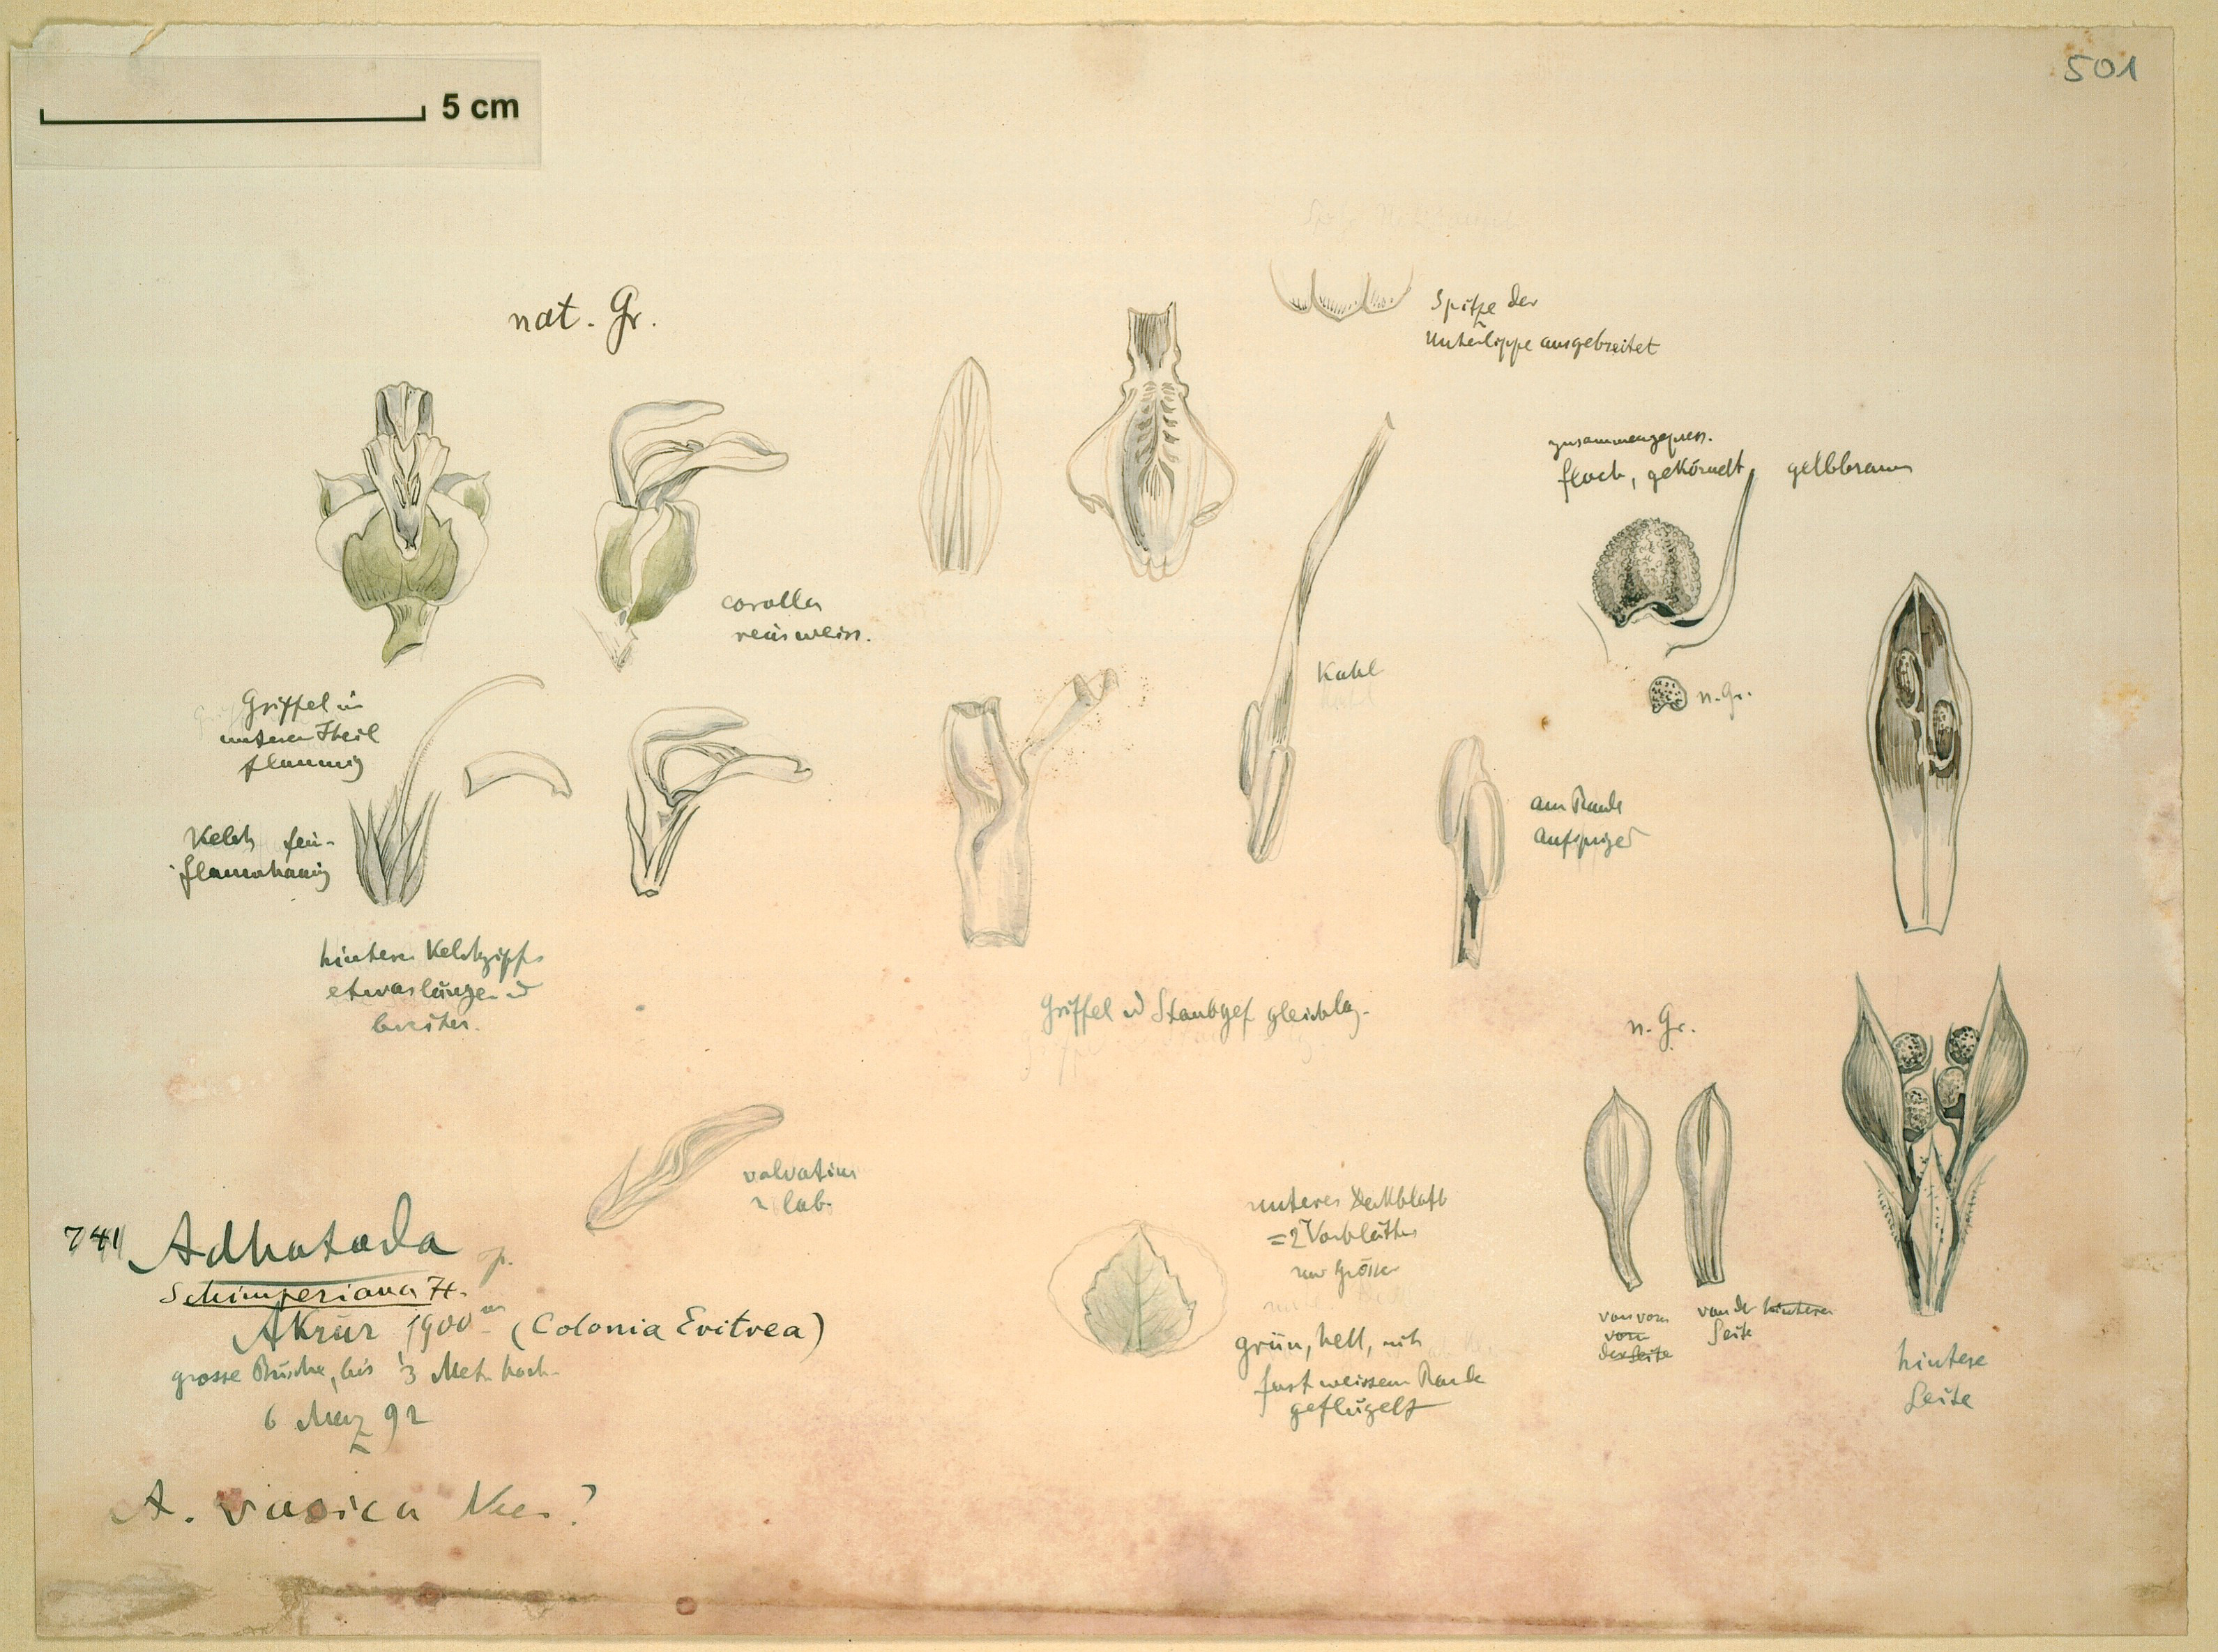 5 cm
501
nat. Gr.
Spitze der
Unterlippe ausgebreitet
zusammengepress.
flach, gekörnelt gelbbraun
corolla
reinweiss.
Griffel im
unteren Theil
flaumig
Kahl
n. Gr.
Kelch fein-
flaumhaarig
am Rande
hintere Kelchzipfel
etwas länger u
breiter.
Griffel u Staubgef gleichlg.
n. Gr.
lab.
unteres Deckblatt
= 2 Vorblätter
nur grösser
741 Adhatoda sp.
Schimperiana H.
Akrur 1900 m (Colonia Eritrea)
grosse Büsche, bis 3 Met. hoch
6 März 92
grün, hell, mit
fast weissem Rande
geflügelt
von vorn
von
der Seite
von der hinteren
Seite
hintere
Seite
A. vasica Nees?